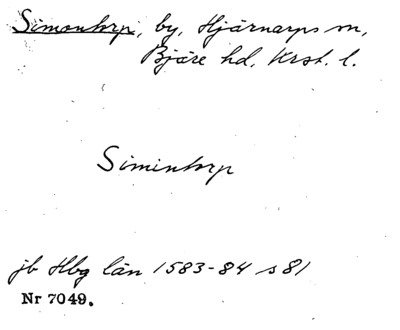 Simontorp, by, Hjärnarps sn,
Bjäre hd, Krst. l.
Simintorp
jb Hbg län 1583-84 s 81
Nr 7049.